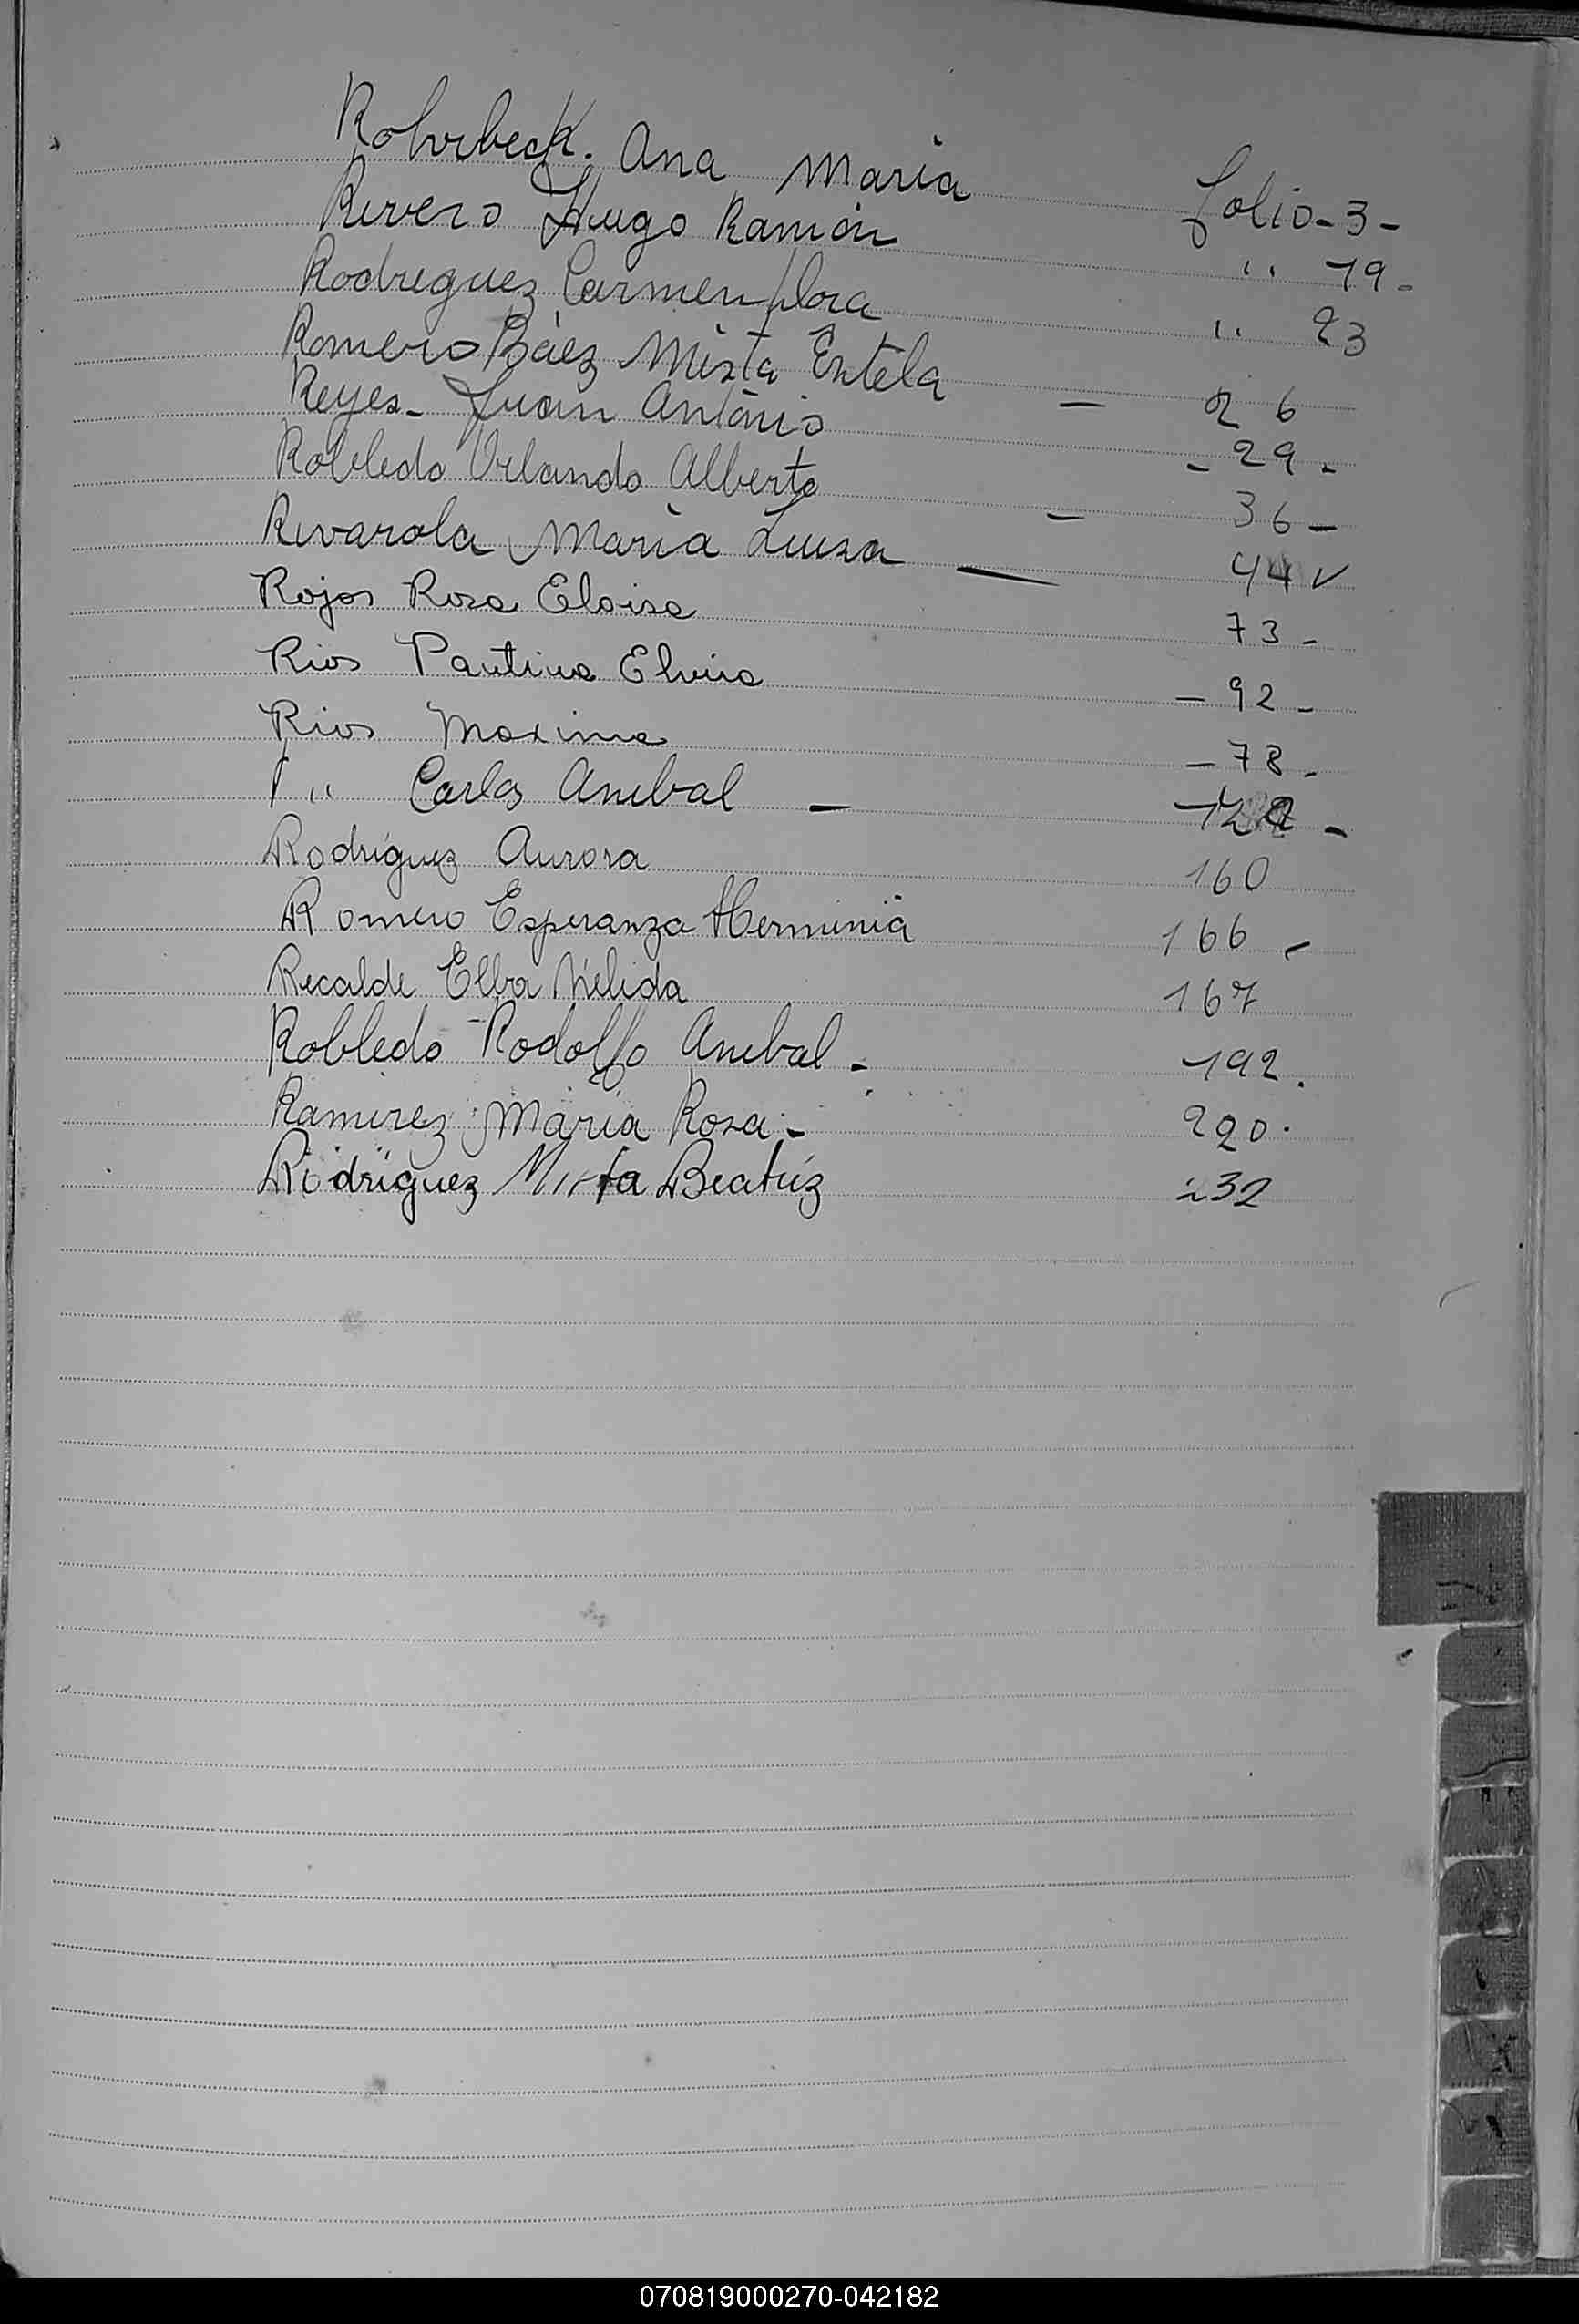 Rohrbeck. Ana Maria folio-3-
Rivero Hugo Ramón " 19-
Rodriguez Carmen Flora " 23
Romero Báez Mirta Estela - 26
Reyes- Juan Antonio - 29-
Robledo Orlando Alberto - 36-
Rivarola Maria Luisa - 44 v
Rojas Rosa Eloisa 73-
Rios Pautina Elvira - 92-
Rios Maxima - 78-
" Carlos Anibal -
Rodríguez Aurora 160
Romero Esperanza Herminia 166 -
Recalde Elba Nelida 167
Robledo Rodolfo Anibal - 192.
Ramirez Maria Rosa - 220.
Rodríguez Mirta Beatríz 232
070819000270-042182